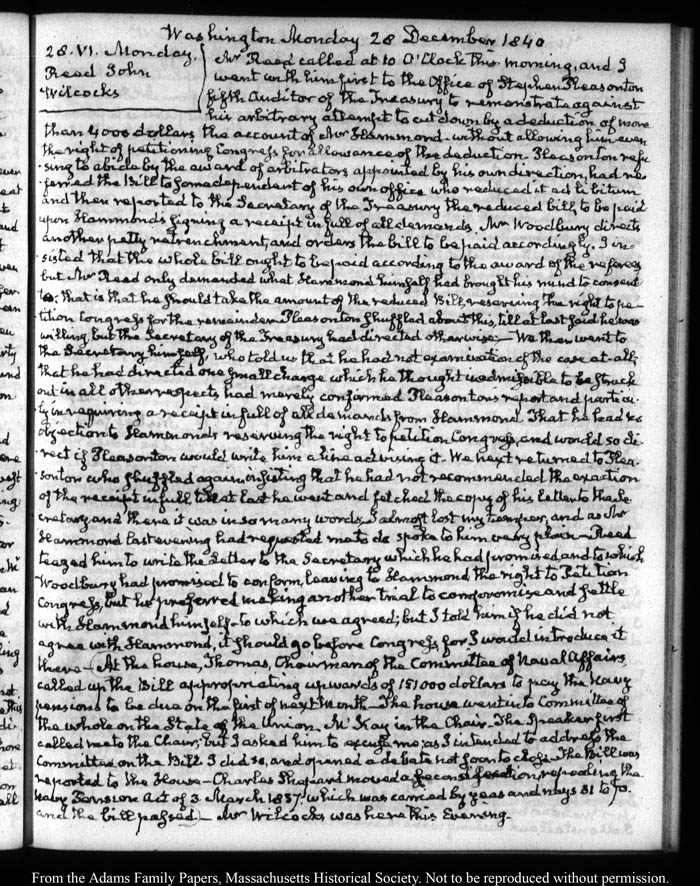 Washington Monday 28 December 1840
28. VI. Monday.
Reed John
Wilcocks
Mr Reed called at 10 O'Clock this morning, and I
went with him first to the Office of Stephen Pleasonton
fifth Auditor of the Treasury to remonstrate against
his arbitrary attempt to cut down by a deduction of more
than 4000 dollars the account of Mr Hammond without allowing him even
the right of petitioning Congress for allowance of the deduction. Pleasonton refu-
sing to abide by the award of arbitrators appointed by his own direction, had re-
ferred the Bill to some dependent of his own office who reduced it ad libitum
and then reported to the Secretary of the Treasury the reduced bill, to be paid
upon Hammonds signing a receipt in full of all demands. Mr Woodbury directs
another petty retrenchment, and orders the bill to be paid accordingly. I in-
sisted that the whole bill ought to be paid according to the award of the referees
but Mr Reed only demanded what Hammond himself had brought his mind to consent
to; that is that he should take the amount of the reduced Bill, reserving the right to pe-
tition Congress for the remainder. Pleasonton shuffled about this, till at last said he was
willing but the Secretary of the Treasury had directed otherwise — We then went to
the Secretary himself, who told us that he had not examination of the case at all;
that he had directed one small change which he thought inadmissible to be struck
out in all other respects had merely confirmed Pleasontons report and particu-
ly in requiring a receipt in full of all demands from Hammond. That he had no
objection to Hammonds reserving the right to petition Congress, and would so di-
rect if Pleasonton would write him a line advising it. We next returned to Plea-
sonton who shuffled again insisting that he had not recommended the exaction
of the receipt in full till at last he went and fetched the copy of his letter to the Se-
cretary, and there it was in so many words. I almost lost my temper, and as Mr
Hammond last evening had requested me to do spoke to him very plain — Reed
teazed him to write the Letter to the Secretary which he had promised and to which
Woodbury had promised to conform, leaving to Hammond the right to Petition
Congress, but he preferred making another trial to compromise and settle
with Hammond himself — to which we agreed; but I told him if he did not
agree with Hammond, it should go before Congress for I would introduce it
there — At the house, Thomas, Chairman of the Committee of Naval Affairs
called up the Bill appropriating upwards of 151000 dollars to pay the Navy
pensions to be due on the first of next Month — The house went into Committee of
the whole on the State of the Union. McKay in the Chair. The Speaker first
called me to the Chair, but I asked him to excuse me, as I intended to address the
Committee on the Bill. I did so, and opened a debate not soon to close. The Bill was
reported to the House — Charles Shepard moved a second section, repealing the
Navy Pension Act of 3. March 1837. which was carried by yeas and nays 81 to 70.
and the bill passed — Mr Wilcocks was here this Evening.
From the Adams Family Papers, Massachusetts Historical Society. Not to be reproduced without permission.